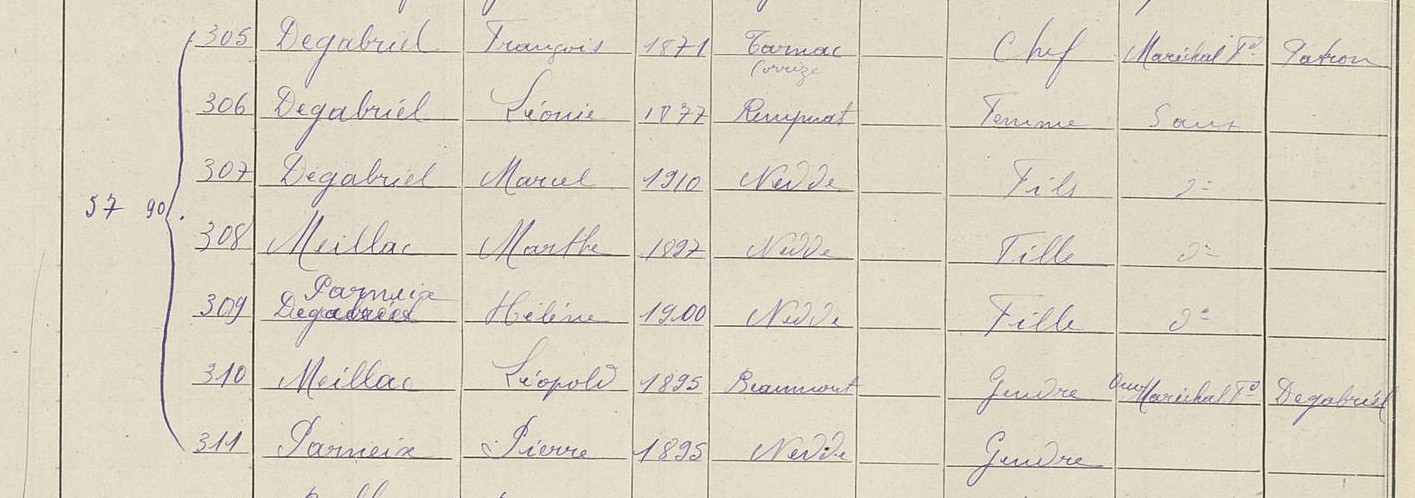 305 Degabriel François 1871 Tarnac Chef Maréchal Ft Patron
Corrèze
306 Degabriél Léonie 1877 Rempnat Femme Sans
307 Degabriel Marcel 1910 Nedde Fils do
57 90
308 Meillac Marthe 1897 Nedde Fille do
Parneix
309 Degabriel Hélène 1900 Nedde Fille do
310 Meillac Léopold 1895 Beaumont Gendre Ouv Maréchal Ft Degabriél
311 Parneix Pierre 1895 Nedde Gendre